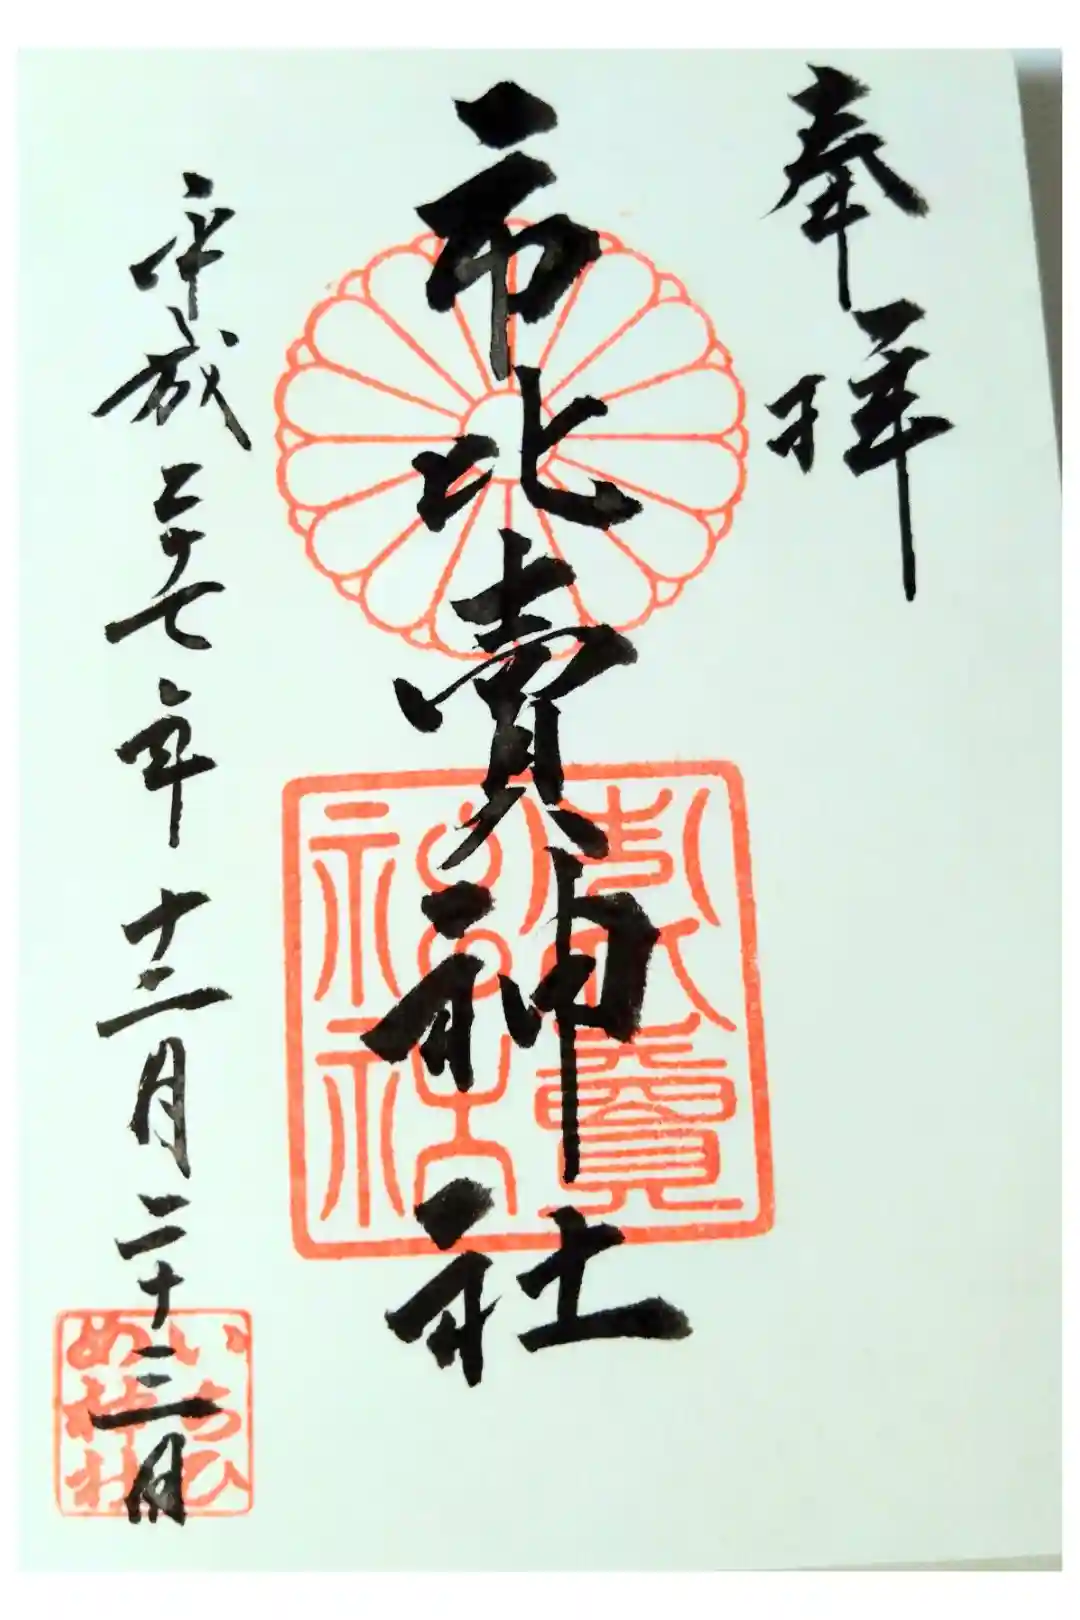 奉拝
市比賣神社
平成二十七年十二月二十三日
いちひ
め神社